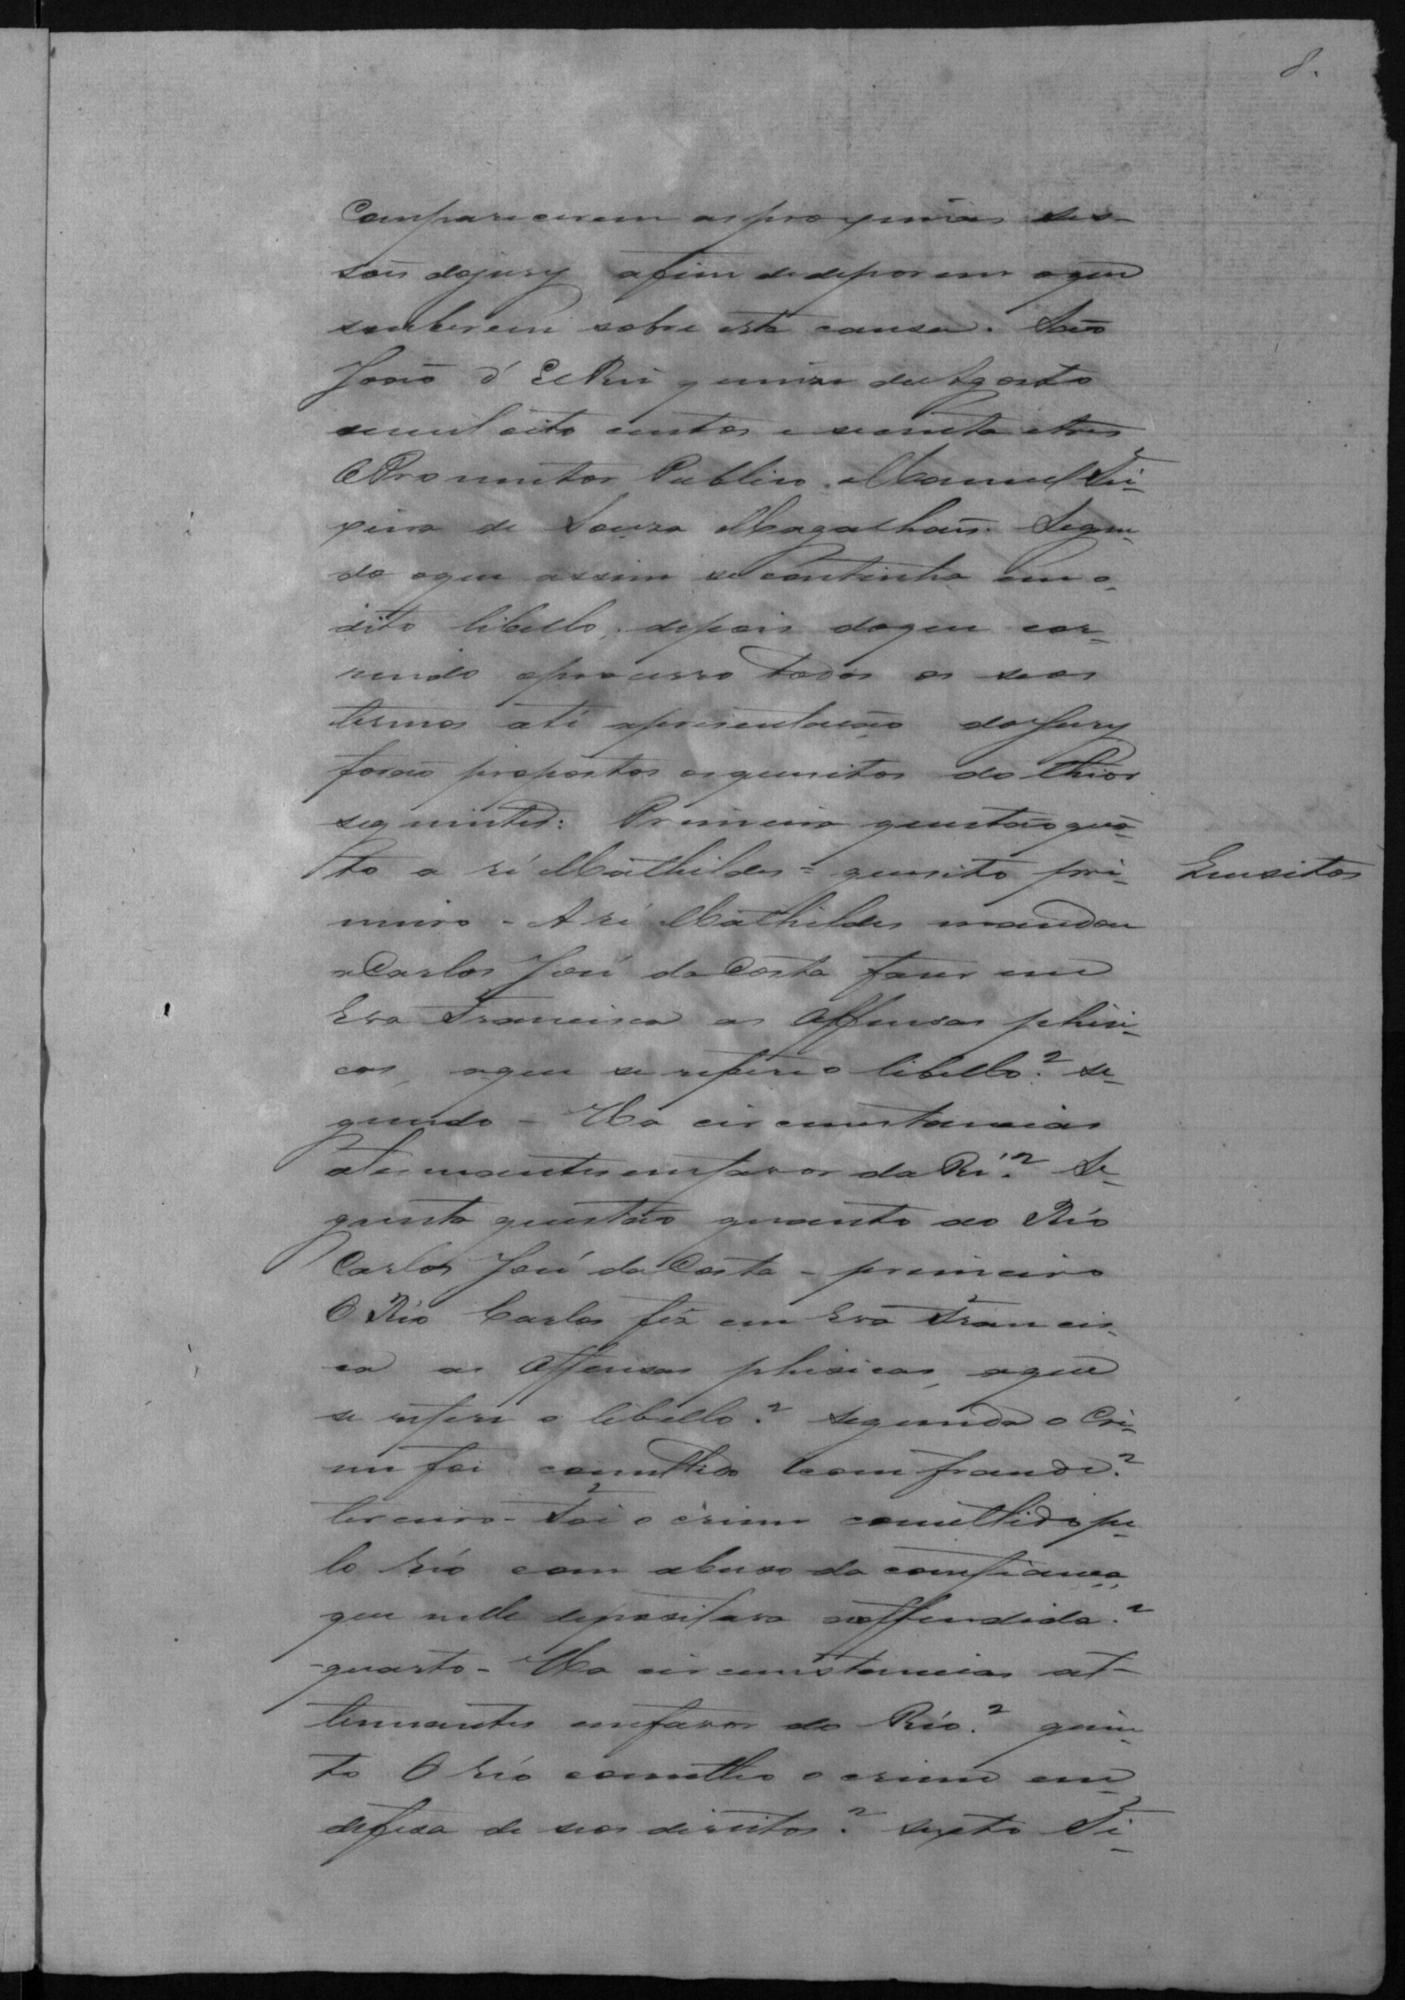 8.
Comparecerem as proximas ses-
sois do jury afim de deporem o que
souberem sobre esta causa. São
João d' El Rei quinze de Agosto
de mil oito centos e secenta e tres
O Promotor Publico. Manuel Tei-
xeira de Souza Magalhais. Segun-
do o que assim se continha em o
dito libello, depois do que cor-
rendo o processo todos os seos
termos até apresentacão do Jury
forão propostos os quesitos do theor
seguinte: Primeira questão quã-
to a ré Mathildes = quesito pri-
Quesitos
meiro - A ré Mathildes mandou
a Carlos José da Costa fazer em
Eva Francisca as Offensas phisi-
cas, a que se refere o libello? se-
gundo - Ha circumstancias
atenuantes em favor da Ré? Se-
gunda questão quanto ao Réo
Carlos José da Costa - primeiro
O Réo Carlos fez em Eva Francis-
ca as Offensas phisicas, a que
se refere o libello? segundo o Cri-
me foi comettido com fraude?
terceiro - Foi o crime comettido pe-
lo réo com abuso da confiança,
que nelle depositava a offendida?
quarto - Ha circumstancias at-
tenuantes em favor do Réo? quin-
to O réo cometteo o crime em
defesa de seos direitos? sexto Ti-